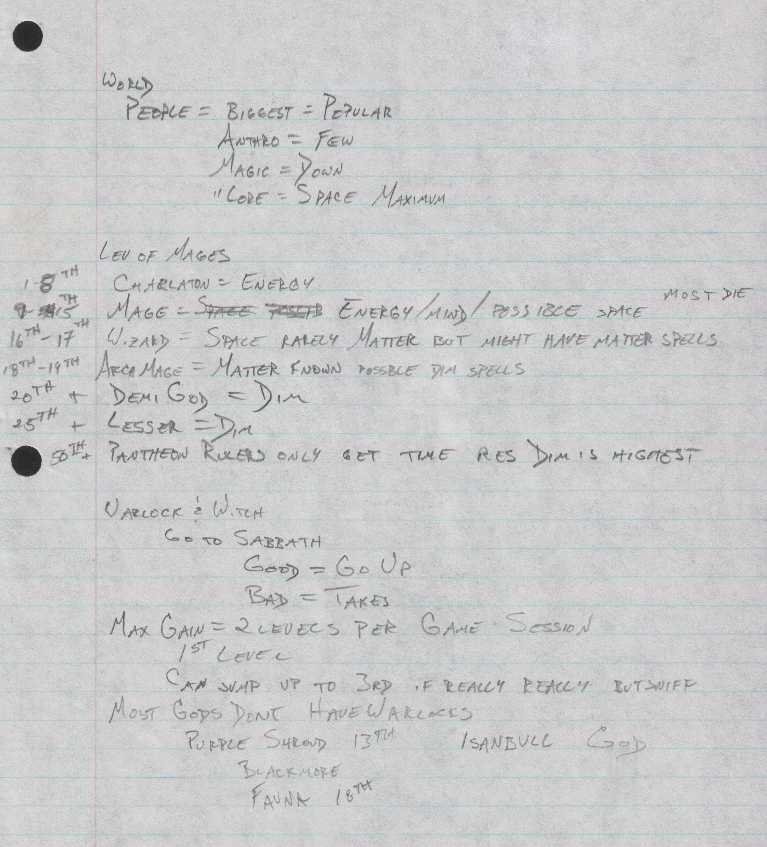 WORLD
PEOPLE = BIGGEST = POPULAR
ANTHRO = FEW
MAGIC = DOWN
" CODE = SPACE MAXIMUM
LEV OF MAGES
1-8TH CHARLATON = ENERGY
9-15TH MAGE = ENERGY/MIND/POSSIBLE SPACE MOST DIE
16TH-17TH WIZARD = SPACE RARELY MATTER BUT MIGHT HAVE MATTER SPELLS
18TH-19TH ARCAMAGE = MATTER KNOWN POSSBLE DIM SPELLS
20TH + DEMI GOD = DIM
25TH + LESSER = DIM
50TH+ PANTHEON RULERS ONLY GET TIME RES DIM IS HIGHEST
WARLOCK & WITCH
GO TO SABBATH
GOOD = GO UP
BAD = TAKES
MAX GAIN = 2 LEVELS PER GAME SESSION
1ST LEVEL
CAN JUMP UP TO 3RD IF REALLY REALLY BUTSNIFF
MOST GODS DONT HAVE WARLOCKS
PURPLE SHROUD 13TH ISANBULL GOD
BLACKMORE
FAUNA 18TH